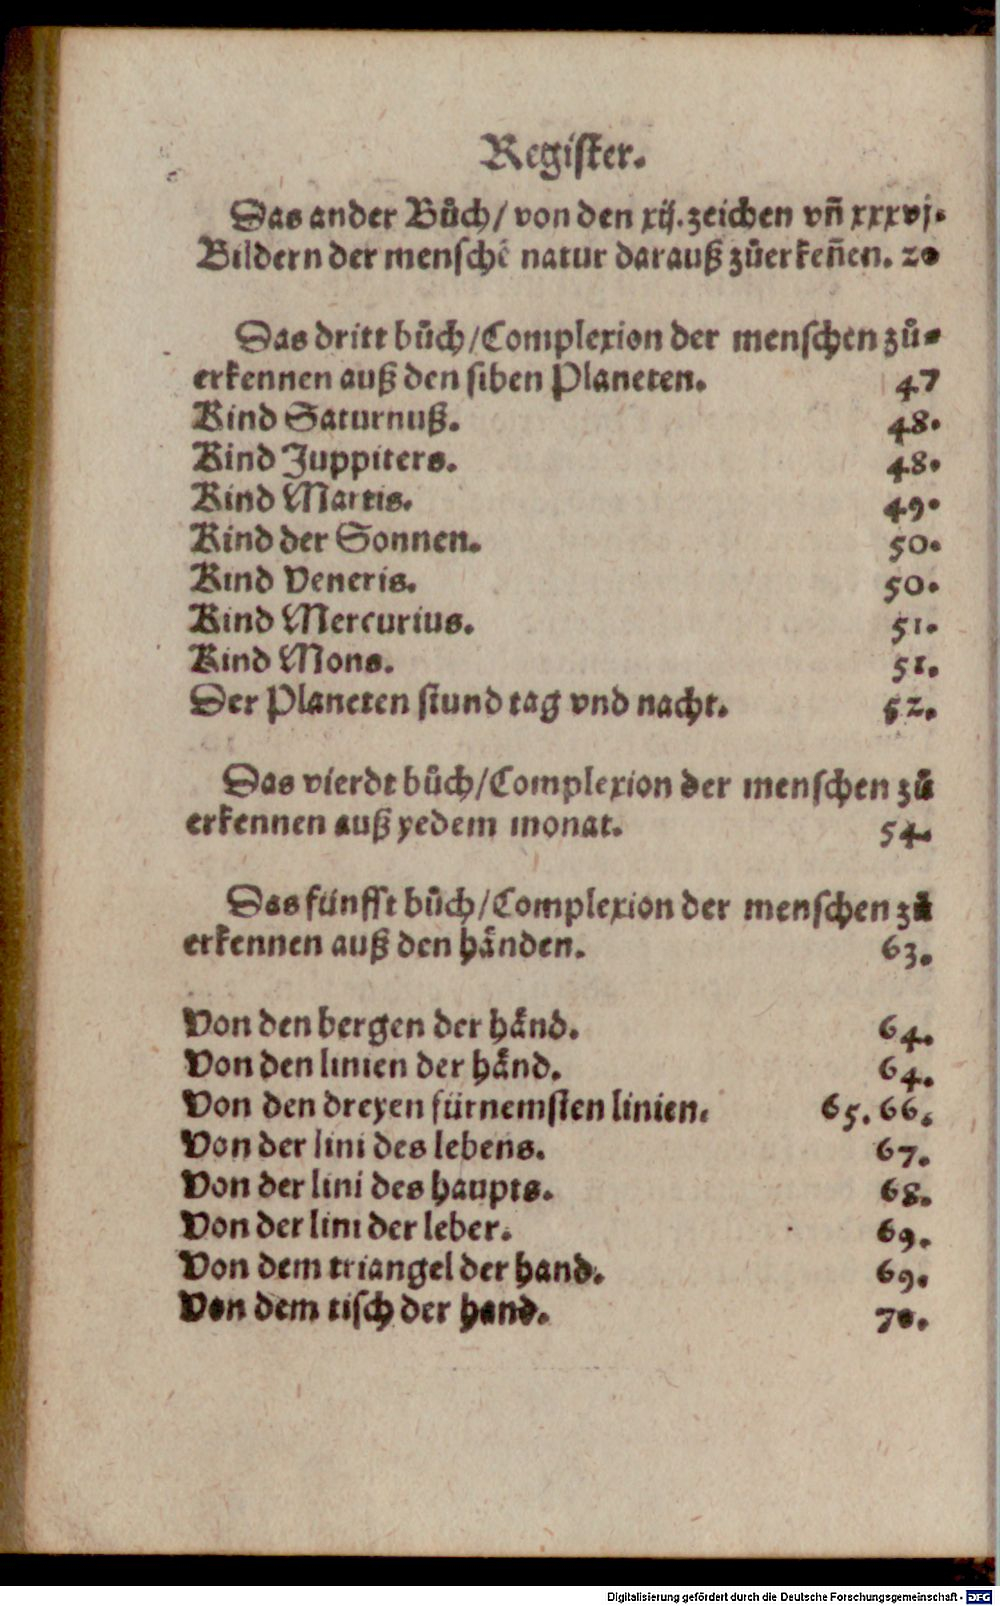 Register.
Das ander Bůch/ von den xij. zeichen vñ xxxvj.
Bildern der menschē natur darauß zůerkeñen. 20
Das dritt bůch/Complexion der menschen zů-
erkennen auß den siben Planeten. 47
Kind Saturnuß. 48.
Kind Juppiters. 48.
Kind Martis. 49.
Kind der Sonnen. 50.
Kind Veneris. 50.
Kind Mercurius. 51.
Kind Mons. 51.
Der Planeten stund tag vnd nacht. 52.
Das vierdt bůch/Complexion der menschen zů
erkennen auß yedem monat. 54.
Das fünfft bůch/Complexion der menschen zů
erkennen auß den hånden. 63.
Von den bergen der hånd. 64.
Von den linien der hånd. 64.
Von den dreyen fürnemsten linien. 65. 66.
Von der lini des lebens. 67.
Von der lini des haupts. 68.
Von der lini der leber. 69.
Von dem triangel der hand. 69.
Von dem tisch der hand. 70.
Digitalisierung gefördert durch die Deutsche Forschungsgemeinschaft - DFG